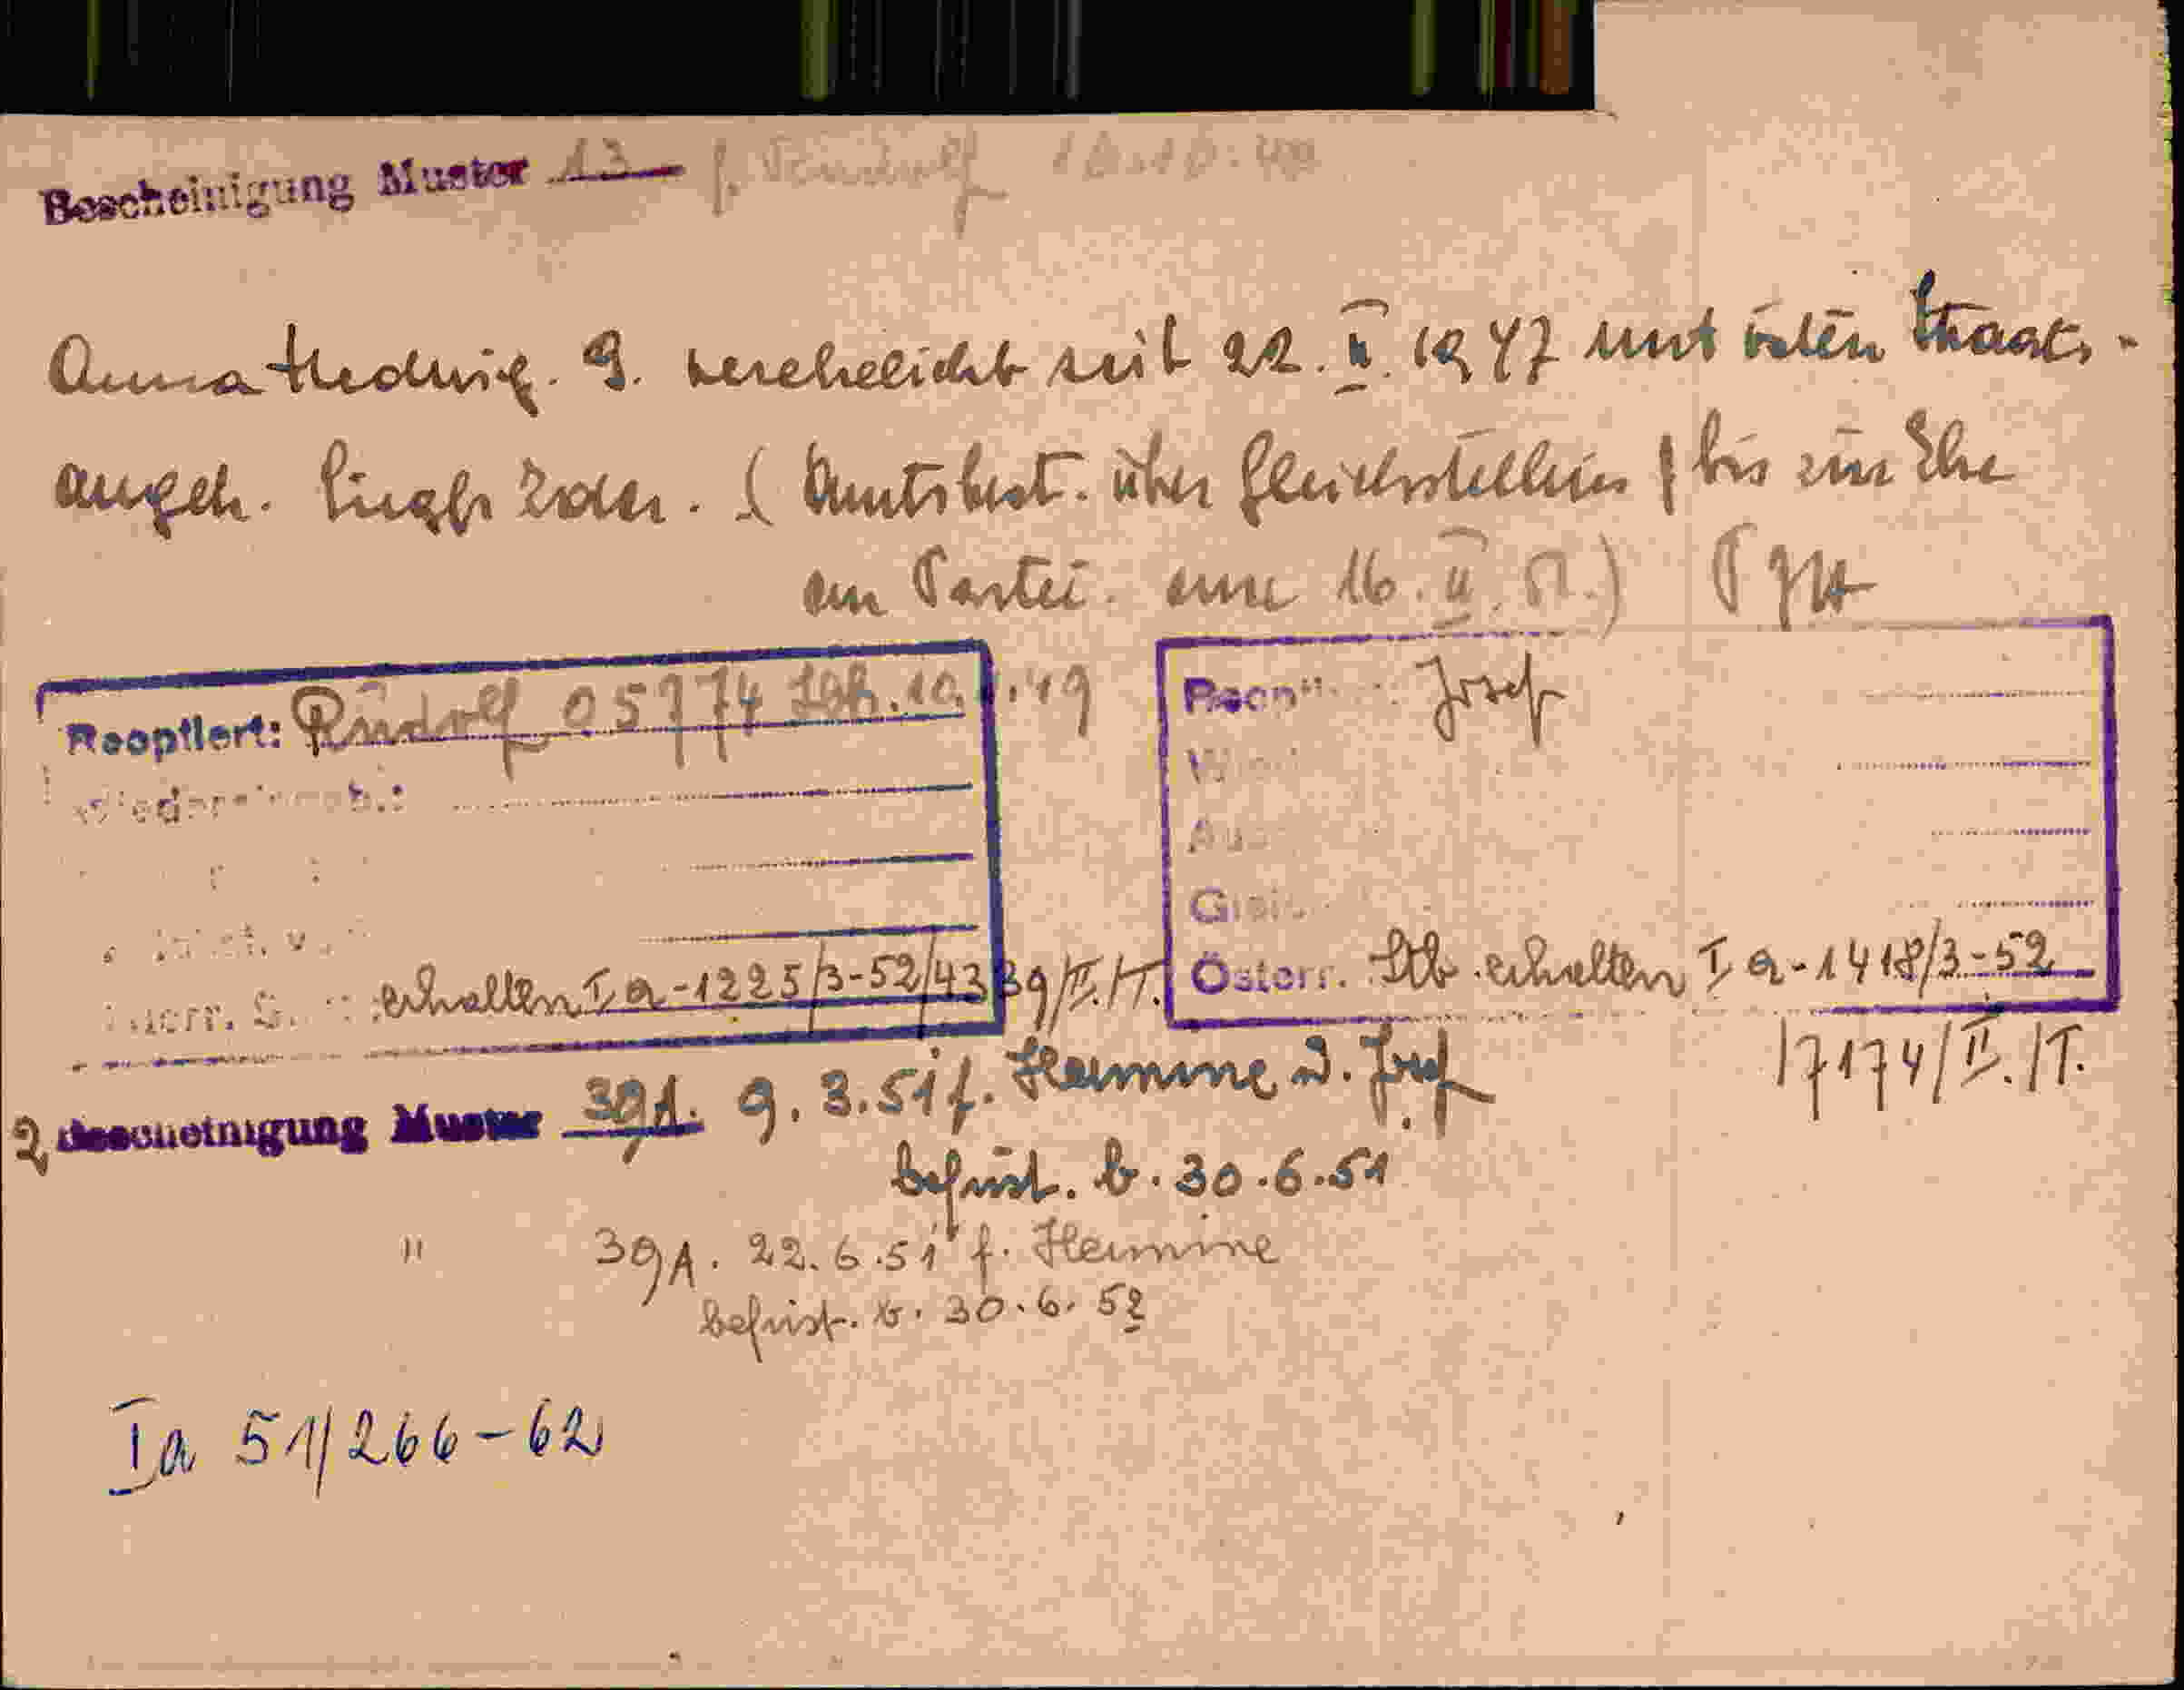 Bescheinigung Muster 13 f. Rudolf 10.10.48
Anna Hedwig. G. verehelicht seit 22. II. 1947 mit österr. Staats-
angeh. Eder. ( Amtsbest. über Gleichstellung bis zur Ehe
an Partei. am 16. II. 51.)
Reoptiert: Rudolf 05974
erhalten I a-1225/3-52/4339/II./T.
Josef
Österr. Stb. erhalten I a-1418/3-52
/7174/II./T.
2 Bescheinigung Muster 39A. 9.3.51 f. Hermine u. Josef
befrist. b. 30.6.51
" 39A. 22.6.51 f. Hermine
befrist. b. 30.6.52
Ia 51/266-62